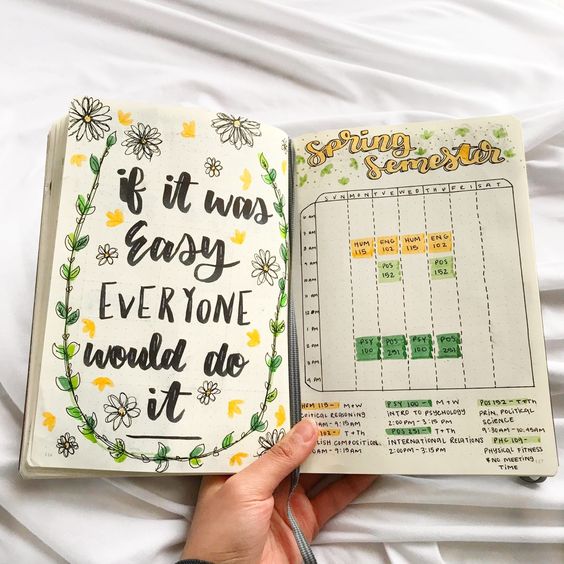 if it was
Easy
EVERYONE
would do
it
Spring
Semester
SUN MON TUE WED THU FRI SAT
8 AM
HUM 115 ENG 102 HUM 115 ENG 102
POS 152 POS 152
1 PM
2 PM
PSY 100 POS 251 PSY 100 POS 251
3 PM
4 PM
HUM 115 - M+W
CRITICAL REASONING
9:30AM
102 - T+Th
ENGLISH COMPOSITION
PSY 100 - M+W
INTRO TO PSYCHOLOGY
2:00 PM - 3:15 PM
POS 251 - T+Th
INTERNATIONAL RELATIONS
2:00PM - 3:15PM
POS 152 - T+Th
PRIN. POLITICAL
SCIENCE
9:30AM - 10:45AM
PHG 109 -
PHYSICAL FITNESS
* NO MEETING
TIME